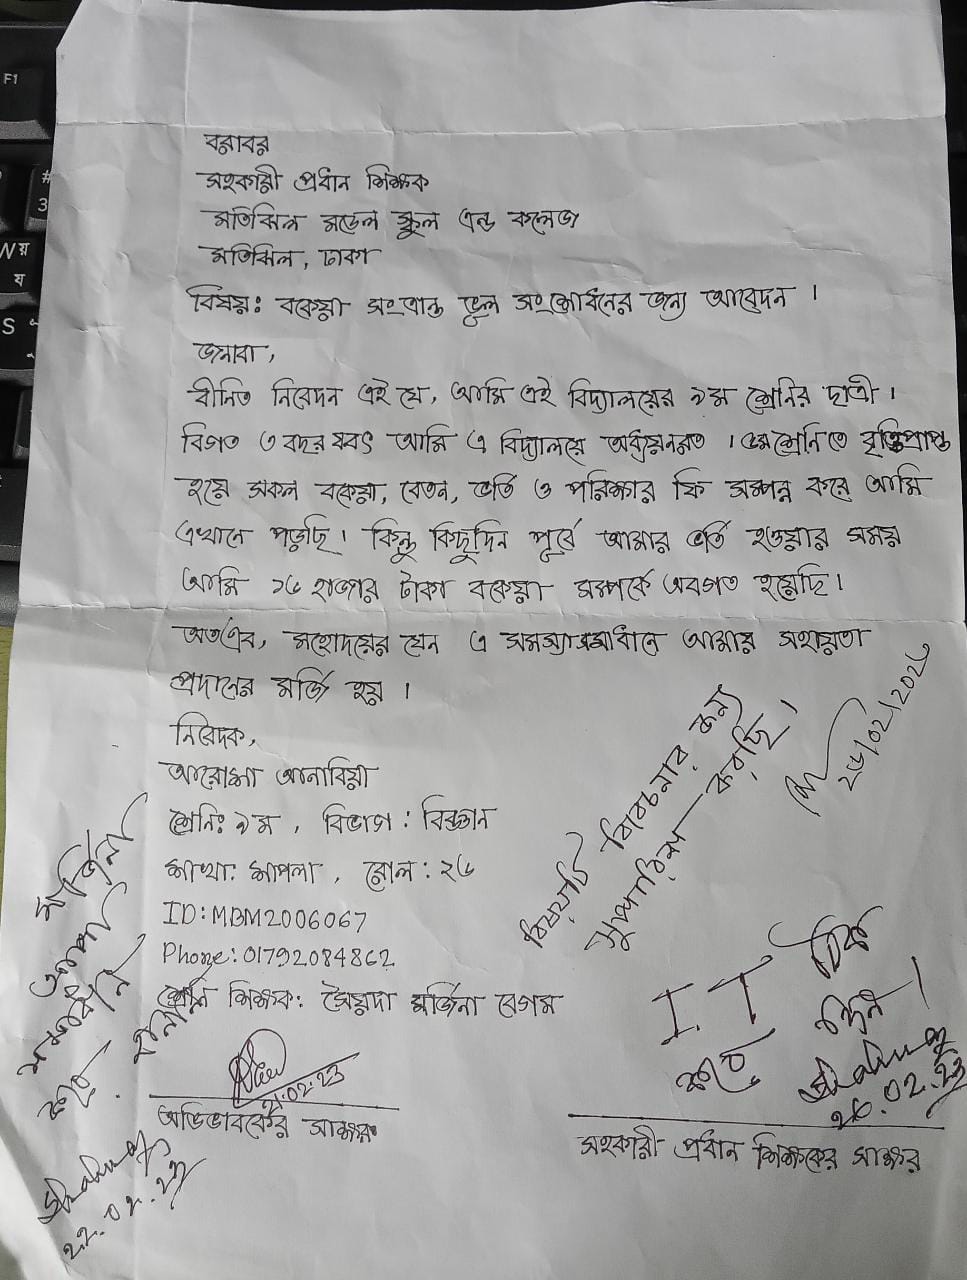 বরাবর
সহকারী প্রধান শিক্ষক
মতিঝিল মডেল স্কুল এন্ড কলেজ
মতিঝিল, ঢাকা
বিষয়ঃ বকেয়া সংক্রান্ত ভুল সংশোধনের জন্য আবেদন ।
জনাবা,
বীনিত নিবেদন এই যে, আমি এই বিদ্যালয়ের ৯ম শ্রেনির ছাত্রী ।
বিগত ৩ বছর যবৎ আমি এ বিদ্যালয়ে অধ্যয়নরত । ৫ম শ্রেনিতে বৃত্তিপ্রাপ্ত
হয়ে সকল বকেয়া, বেতন, ভর্তি ও পরিক্ষার ফি সম্পন্ন করে আমি
এখানে পড়ছি । কিন্তু কিছুদিন পূর্বে আমার ভর্তি হওয়ার সময়
আমি ১৬ হাজার টাকা বকেয়া সম্পর্কে অবগত হয়েছি ।
অতএব, মহোদয়ের যেন এ সমস্যা সমাধানে আমার সহায়তা
প্রদানের মর্জি হয় ।
নিবেদক,
আরোশা আনাবিয়া
শ্রেনিঃ ৯ম , বিভাগ : বিজ্ঞান
শাখা: শাপলা , রোল : ২৬
ID: MBM2006067
Phone: 01792084862
শ্রেনি শিক্ষক: সৈয়দা মর্জিনা বেগম
21.02.23
অভিভাবকের সাক্ষর
বিষয়টি বিবেচনার জন্য
সুপারিশ করছি ।
I.T
সহকারী প্রধান শিক্ষকের সাক্ষর
মর্জিনা
22.02.23